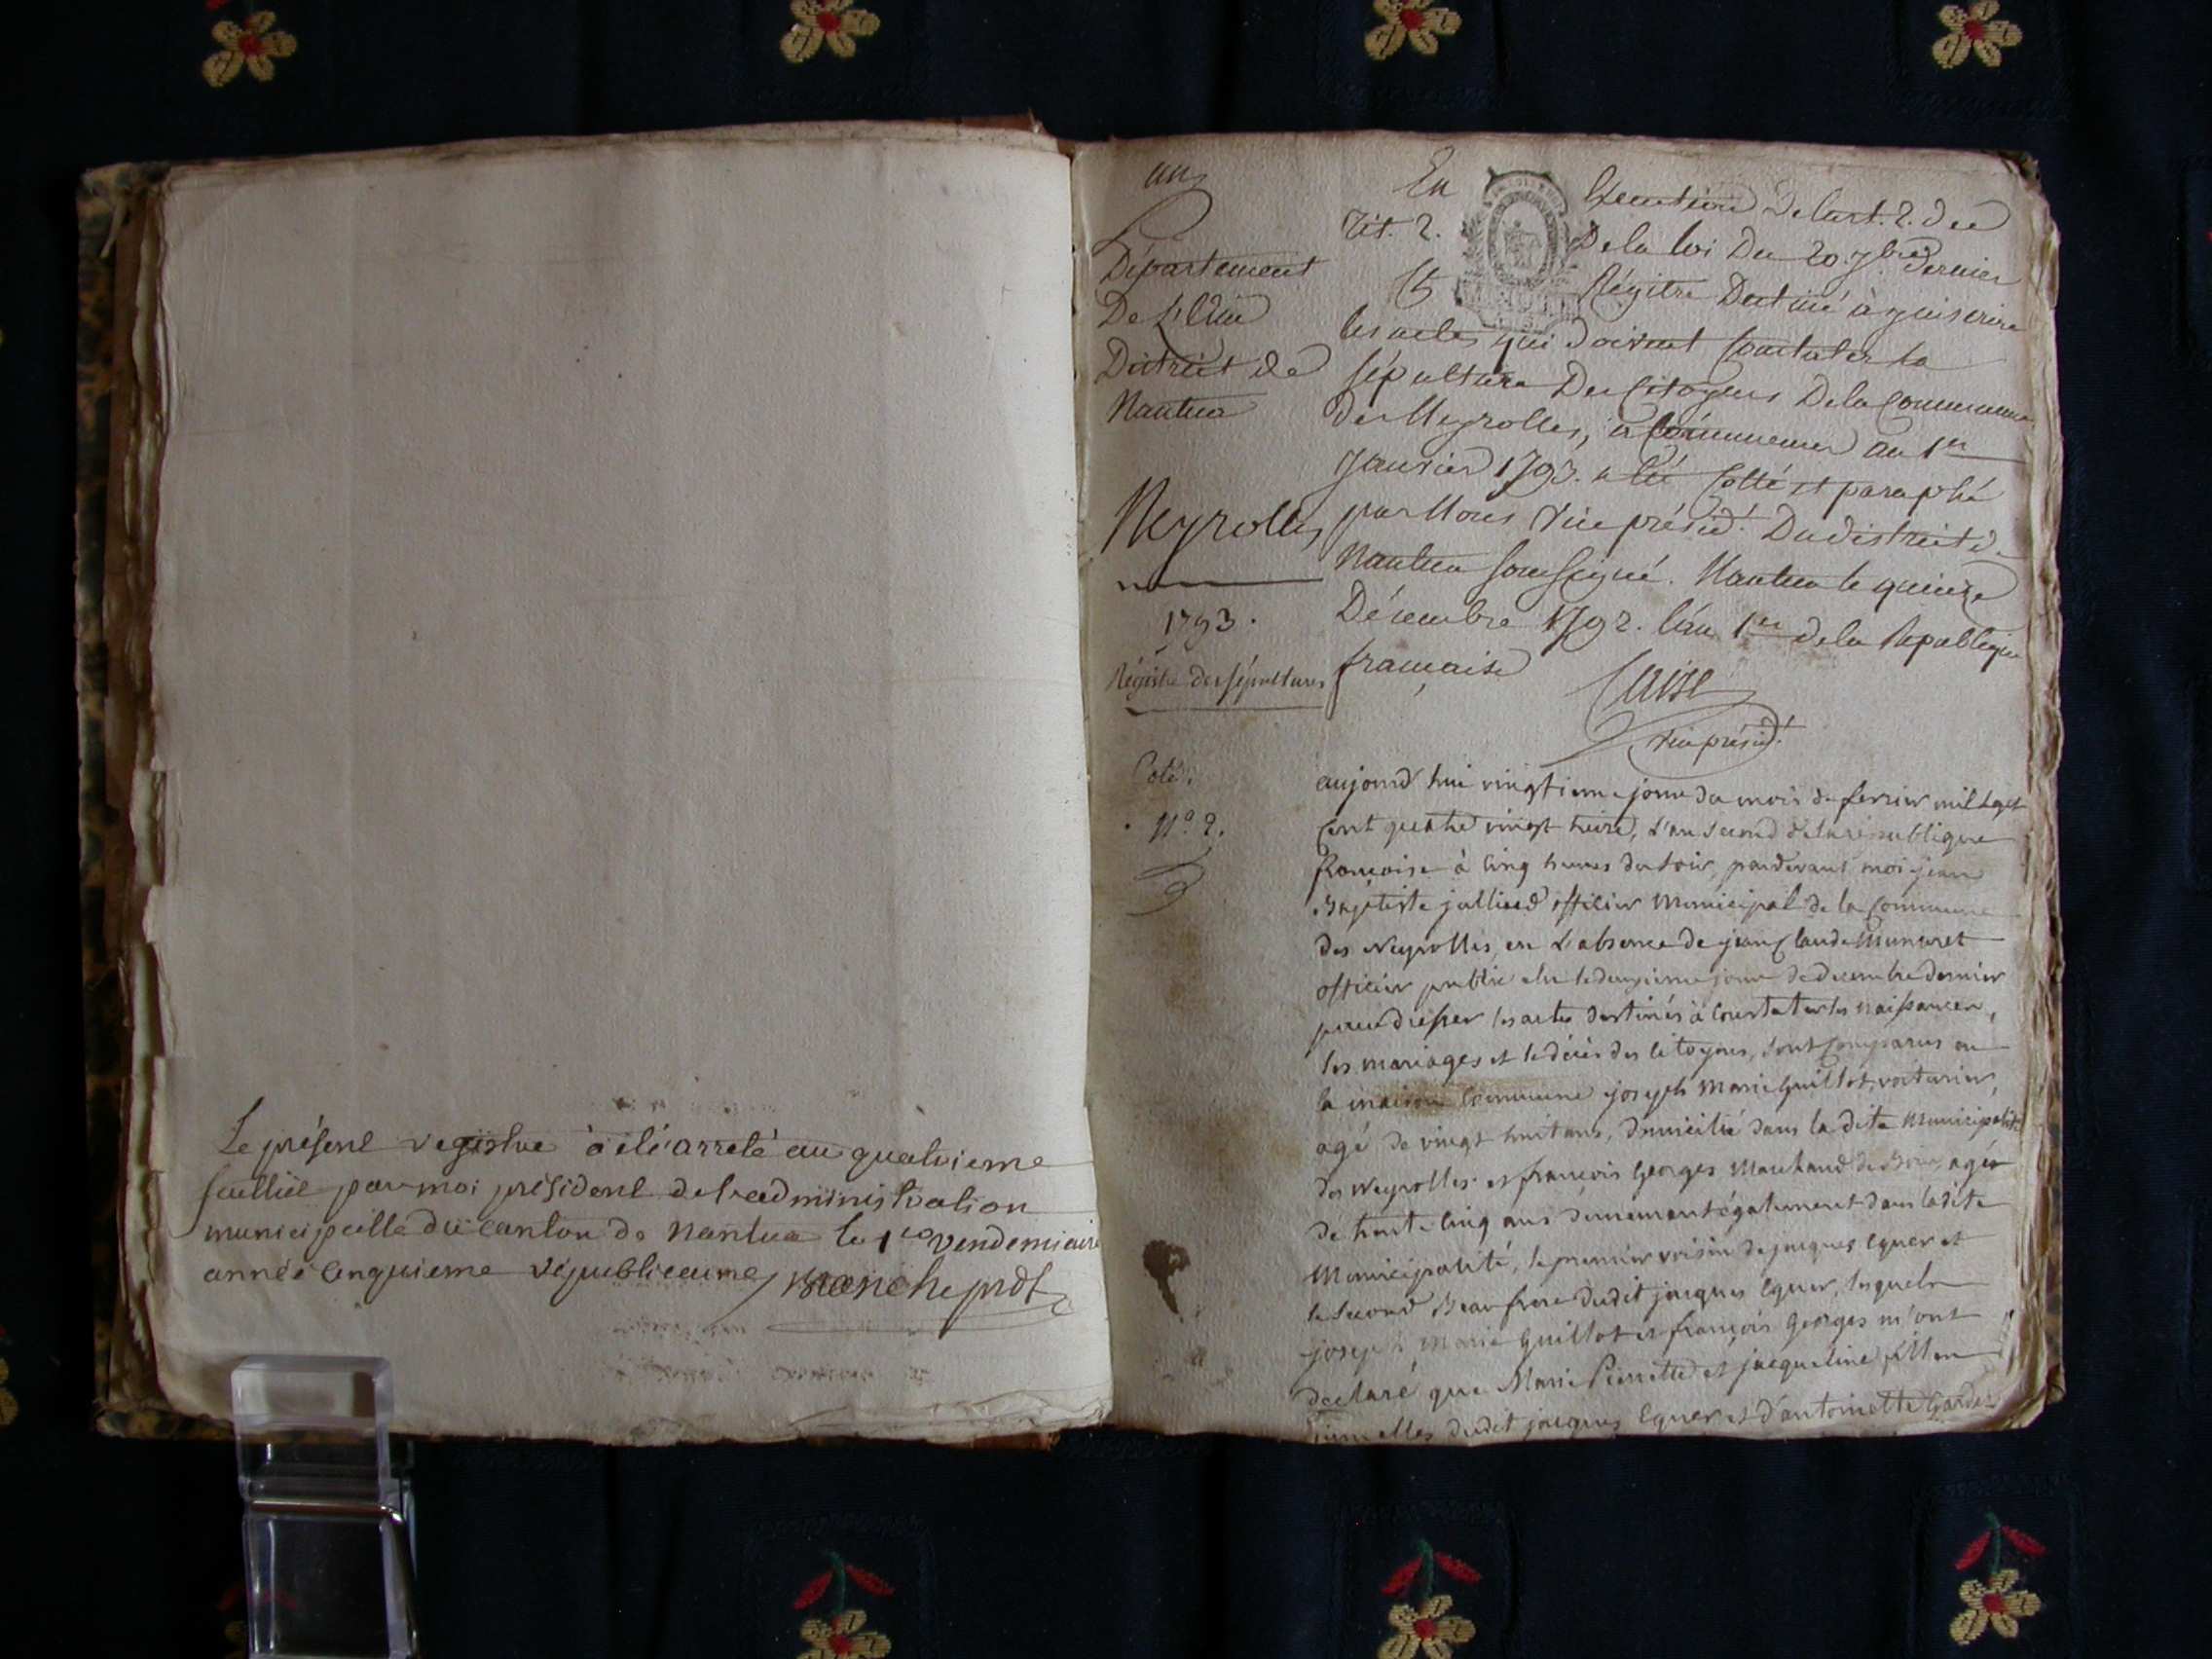 Le présent registre à été arreté au quatrieme
feuillet par moi président de l'administration
municipalle du canton de Nantua le 1er vendemiaire
année cinquieme républicaine
un
Département
De L'Ain
District de
Nantua
Neyrolles
1793.
Régistre des sépultures
Coté.
N.o 2.
En Execution De l'art. 2. du
tit. 2. De la loi Du 20. 7bre dernier
Régitre Destiné à y inscrire
les actes qui doivent Constater la
sépulture Des Citoyens De la Commune
des Neyrolles, à Commencer au 1er
Janvier 1793. a été Cotté et paraphé
par Nous Vice présid.t Du district de
Nantua Soussigné. Nantua le quinze
Décembre 1792. l'an 1er de la République
française
Vice présid.t
aujourd'hui vingtieme jour du mois de fevrier mil sept
cent quatre vingt treize, L'an second de la république
françoise à cinq heures du soir, pardevant moi jean
Baptiste julliard officier Municipal de la Commune
des Neyrolles, en L'absence de jean Claude Muneret
officier public elu le deuxieme jour de decembre dernier
pour dresser les actes destinés à Constater les naissances,
les mariages et le décès des citoyens, sont comparus en
la maison Commune joseph Marie Guillot, voiturier,
agé de vingt huit ans, domicilié dans la dite Municipalité
des Neyrolles et françois Georges Marchand de agé
de trente cinq ans demeurant également dans la dite
Municipalité, le premier voisin de jacques Equer et
le second Beau frere dudit jacques Equer, lesquels
joseph Marie Guillot et françois Georges m'ont
declaré que Marie Pierrette et jacqueline filles
jumelles dudit jacques Equer et d'antoinette